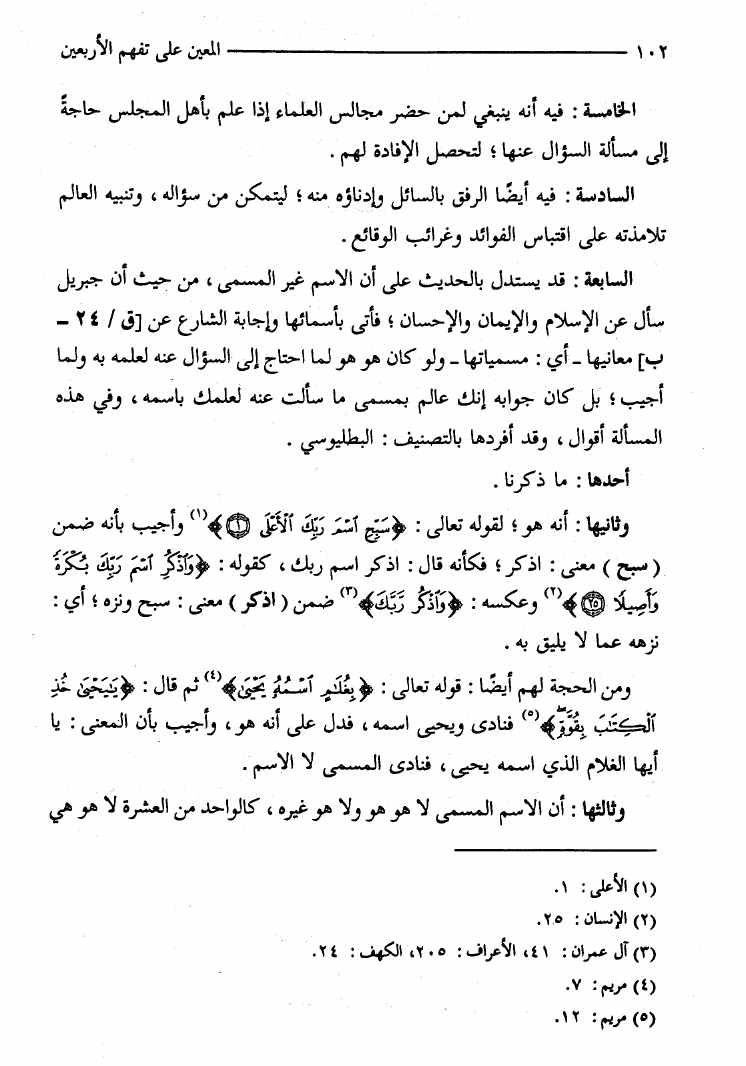 ١٠٢ المعين على تفهم الأربعين
الخامسة : فيه أنه ينبغي لمن حضر مجالس العلماء إذا علم بأهل المجلس حاجةً
إلى مسألة السؤال عنها ؛ لتحصل الإفادة لهم .
السادسة : فيه أيضًا الرفق بالسائل وإدناؤه منه ؛ ليتمكن من سؤاله ، وتنبيه العالم
تلامذته على اقتباس الفوائد وغرائب الوقائع .
السابعة : قد يستدل بالحديث على أن الاسم غير المسمى ، من حيث أن جبريل
سأل عن الإسلام والإيمان والإحسان ؛ فأتى بأسمائها وإجابة الشارع عن [ق / ٢٤ ـ
ب] معانيها ـ أي : مسمياتها ـ ولو كان هو هو لما احتاج إلى السؤال عنه لعلمه به ولما
أجيب ؛ بل كان جوابه إنك عالم بمسمى ما سألت عنه لعلمك باسمه ، وفي هذه
المسألة أقوال ، وقد أفردها بالتصنيف : البطليوسي .
أحدها : ما ذكرنا .
وثانيها : أنه هو ؛ لقوله تعالى : ﴿سَبِّحِ ٱسْمَ رَبِّكَ ٱلْأَعْلَى ١﴾(١) وأجيب بأنه ضمن
( سبح ) معنى : اذكر ؛ فكأنه قال : اذكر اسم ربك ، كقوله : ﴿وَٱذْكُرِ ٱسْمَ رَبِّكَ بُكْرَةً
وَأَصِيلًا ٢٥﴾(٢) وعكسه : ﴿وَٱذْكُر رَّبَّكَ﴾(٣) ضمن ( اذكر ) معنى : سبح ونزه ؛ أي :
نزهه عما لا يليق به .
ومن الحجة لهم أيضًا : قوله تعالى : ﴿بِغُلَٰمٍ ٱسْمُهُۥ يَحْيَىٰ﴾(٤) ثم قال : ﴿يَٰيَحْيَىٰ خُذِ
ٱلْكِتَٰبَ بِقُوَّةٍۖ﴾(٥) فنادى ويحيى اسمه ، فدل على أنه هو ، وأجيب بأن المعنى : يا
أيها الغلام الذي اسمه يحيى ، فنادى المسمى لا الاسم .
وثالثها : أن الاسم المسمى لا هو هو ولا هو غيره ، كالواحد من العشرة لا هو هي
(١) الأعلى : ١.
(٢) الإنسان : ٢٥.
(٣) آل عمران : ٤١، الأعراف : ٢٠٥، الكهف : ٢٤.
(٤) مريم : ٧.
(٥) مريم : ١٢.